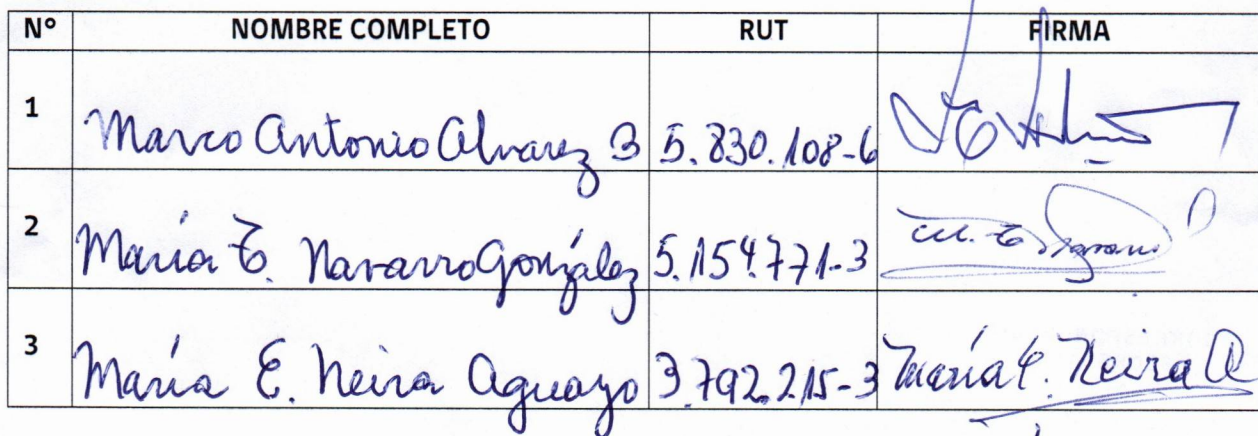 N° NOMBRE COMPLETO RUT FIRMA
1 Marco Antonio Alvarez B 5.830.108-6
2 María T. Navarro González 5.154.771-3
3 María E. Neira Aguayo 3.792.215-3 María E. Neira A